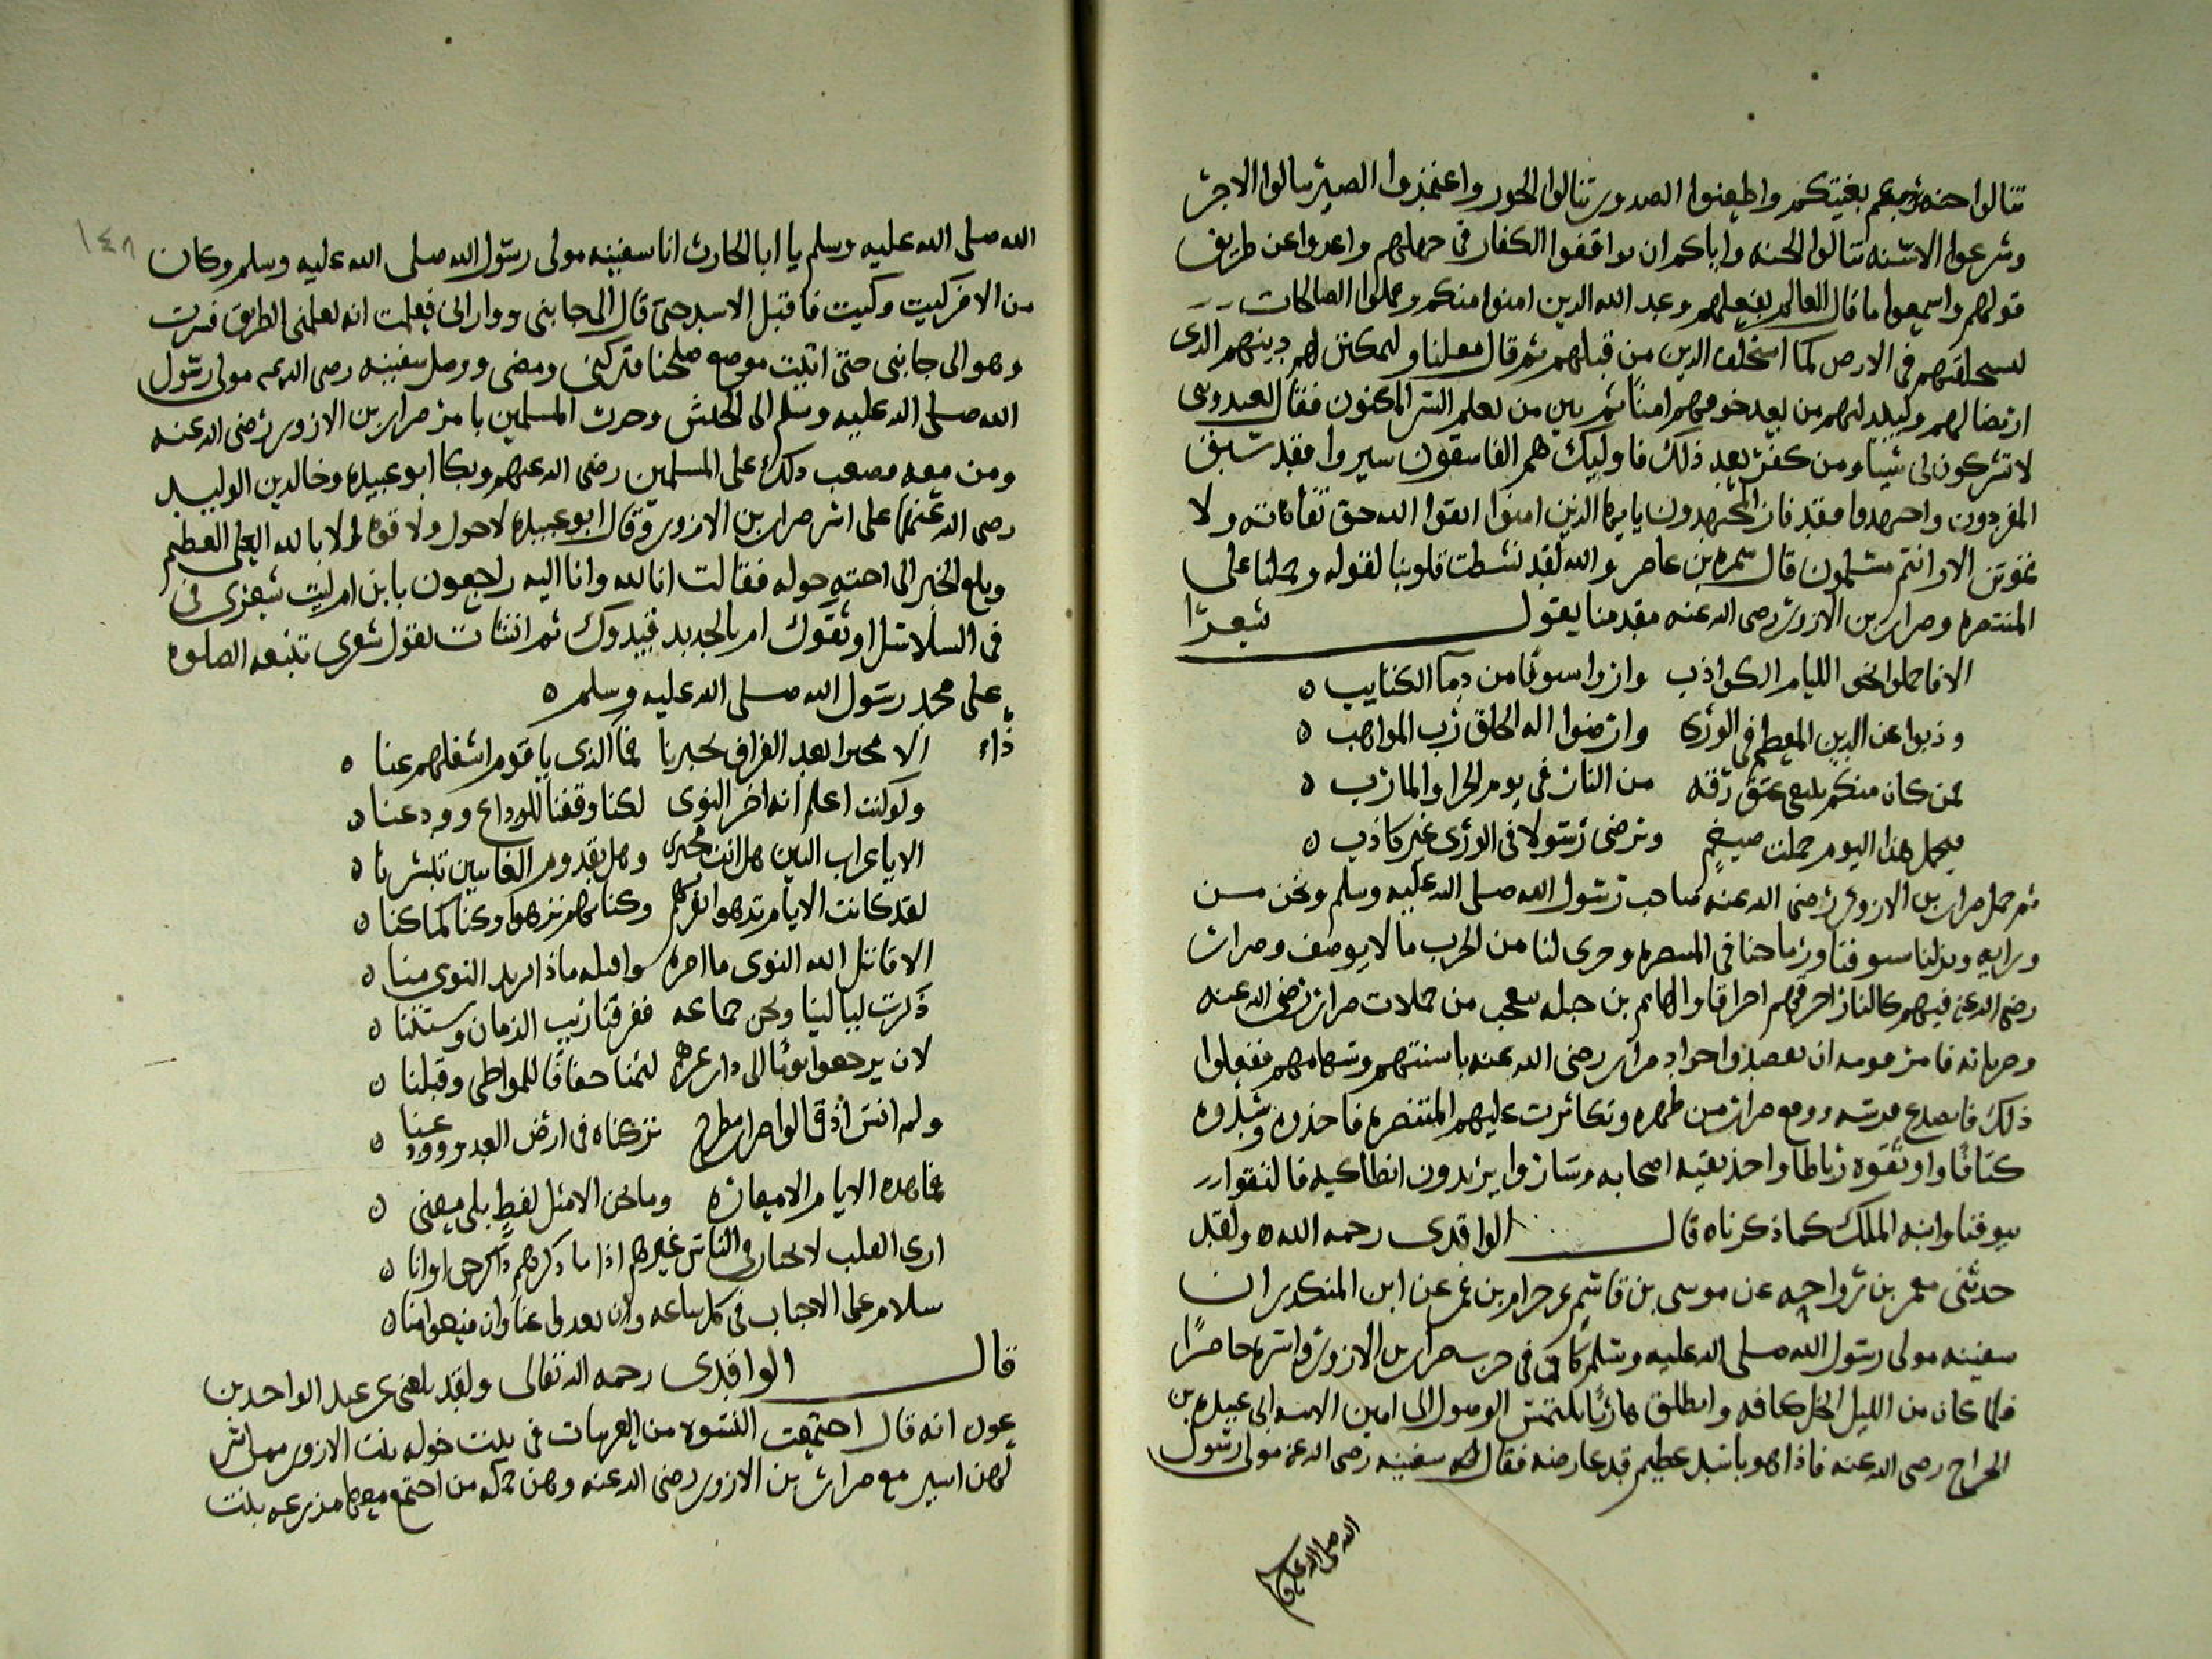 تنالوا جنة ربكم بغيتكم واطعنوا الصدور تنالوا الحور واعتمدوا الصبر تنالوا الاجر
وشرعوا الاسنة تنالوا الجنة واياكم ان توافقوا الكفار في جهلهم واعدلوا عن طريق
قولهم واسمعوا ما قال العالم بفعلهم وعد الله الذين امنوا منكم وعملوا الصالحات
ليستخلفنهم في الارض كما استخلف الذين من قبلهم ثم قال معلنا وليمكنن لهم دينهم الذي
ارتضا لهم وليبدلنهم من بعد خوفهم امنا ثم بين من يعلم السر المكنون فقال يعبدونني
لا تشركون بي شيئا ومن كفر بعد ذلك فاوليك هم الفاسقون سيروا فقد سبق
المفردون واجتهدوا فقد فاز المجتهدون يا ايها الذين امنوا اتقوا الله حق تقاته ولا
تموتن الا وانتم مسلمون قال سمرة بن عامر والله لقد نشطت قلوبنا لقوله وحملنا على
المنتصره وضرار بن الازور رضى الله عنه مقدمنا يقول شعرا
الا فاحملوا نحو الليام الكواذب وارووا سيوفا من دما الكتايب ه
وذبوا عن الدين المعظم في الورى وارضوا اله الخلق رب المواهب ه
فمن كان منكم يبتغي عتق رقه من النار في يوم الجزا والمارب ه
فيحمل هذا اليوم حملت ضيغم ويرضى رسولا في الورى غير كاذب ه
ثم حمل ضرار بن الازور رضى الله عنه صاحب رسول الله صلى الله عليه وسلم ونحن من
ورايه وبذلنا سيوفنا ورماحنا في المنتصره وجرى لنا من الحرب ما لا يوصف وضرار
رضى الله عنه فيهم كالنار احرقهم احراقا والهايم بن جبله يعجب من حملات ضرار رضى الله عنه
وضرباته فامر قومه ان يقصدوا جواد ضرار رضى الله عنه باسنتهم وسهامهم ففعلوا
ذلك فانصدع فرسه ووقع ضرار من ظهره وتكاثرت عليهم المنتصره فاخذوه وشدوه
كتافا واوثقوه رباطا واخذ بقيه اصحابه وساروا يريدون انطاكيه فالتقوا
بيوقنا وابنه الملك كما ذكرناه قال الواقدى رحمه الله ه ولقد
حدثنى معمر بن رواحه عن موسى بن قاسم عن حرام بن عمر عن ابن المنكدر ان
سفينه مولى رسول الله صلى الله عليه وسلم كان في حرب ضرار بن الازور واسره حاضرا
فلما كان من الليل انحل كتافه وانطلق هاربا يلتمس الوصول الى امين الامه ابى عبيده بن
الجراح رضى الله عنه فاذا هو باسد عظيم قد عارضه فقال له سفينه رضى الله عنه مولى رسول
الله صلى الله عليه
١٤٨
الله صلى الله عليه وسلم يا ابا الحارث انا سفينه مولى رسول الله صلى الله عليه وسلم وكان
من الامر كيت وكيت فاقبل الاسد حتى قال الى جانبى ووارانى فعلمت انه يعلمنى الطريق فسرت
وهو الى جانبى حتى اتيت موضع صلحنا فتركنى ومضى ووصل سفينه رضى الله عنه مولى رسول
الله صلى الله عليه وسلم الى الجيش وحدث المسلمين بامر ضرار بن الازور رضى الله عنه
ومن معه فصعب ذلك على المسلمين رضى الله عنهم وبكا ابو عبيده وخالد بن الوليد
رضى الله عنهما على اسر ضرار بن الازور وقال ابو عبيده لا حول ولا قوه الا بالله العلى العظيم
وبلغ الخبر الى اخته خوله فقالت انا لله وانا اليه راجعون يا بن ام ليت شعرى في
في السلاسل اوثقوك ام بالحديد قيدوك ثم انشات تقول شعرى تتبعه الصلوه
على محمد رسول الله صلى الله عليه وسلم ه
الا مخبرا بعد الفراق يخبرنا فما الذى يا قوم اشغلهم عنا ه
ولو كنت اعلم انه اخر النوى لكنا وقفنا للوداع وودعنا ه
الا يا غراب البين هل انت مخبرى وهل بقدوم الغايبين تبشرنا ه
لقد كانت الايام تزهوا بقربهم وكنا بهم نزهوا وكنا كما كنا ه
الا قاتل الله النوى ما امره واقتله ماذا يريد النوى منا ه
ذكرت ليالينا ونحن جماعه ففرقنا ريب الزمان وشتتنا ه
لان يرجعوا يوما الى دار عزهم لثمنا خفافا للمواطى وقبلنا ه
ولم انس اذ قالوا ضرار مطرح تركناه في ارض العدو وودعنا ه
فما هذه الايام الا معاره وما نحن الا مثل لفظ بلى معنى ه
ارى القلب لا يختار في الناس غيرهم اذا ما ذكرهم ذاكر حن او انا ه
سلام على الاحباب في كل ساعه وان بعدوا عنا وان منعوا منا ه
قال الواقدى رحمه الله تعالى ولقد بلغنى عن عبد الواحد بن
عون انه قال اجتمعت النسوه من العربيات في بيت خوله بنت الازور ممن اسر
لهن اسير مع ضرار بن الازور رضى الله عنه وهن جمله من اجتمع معها مزروعه بنت